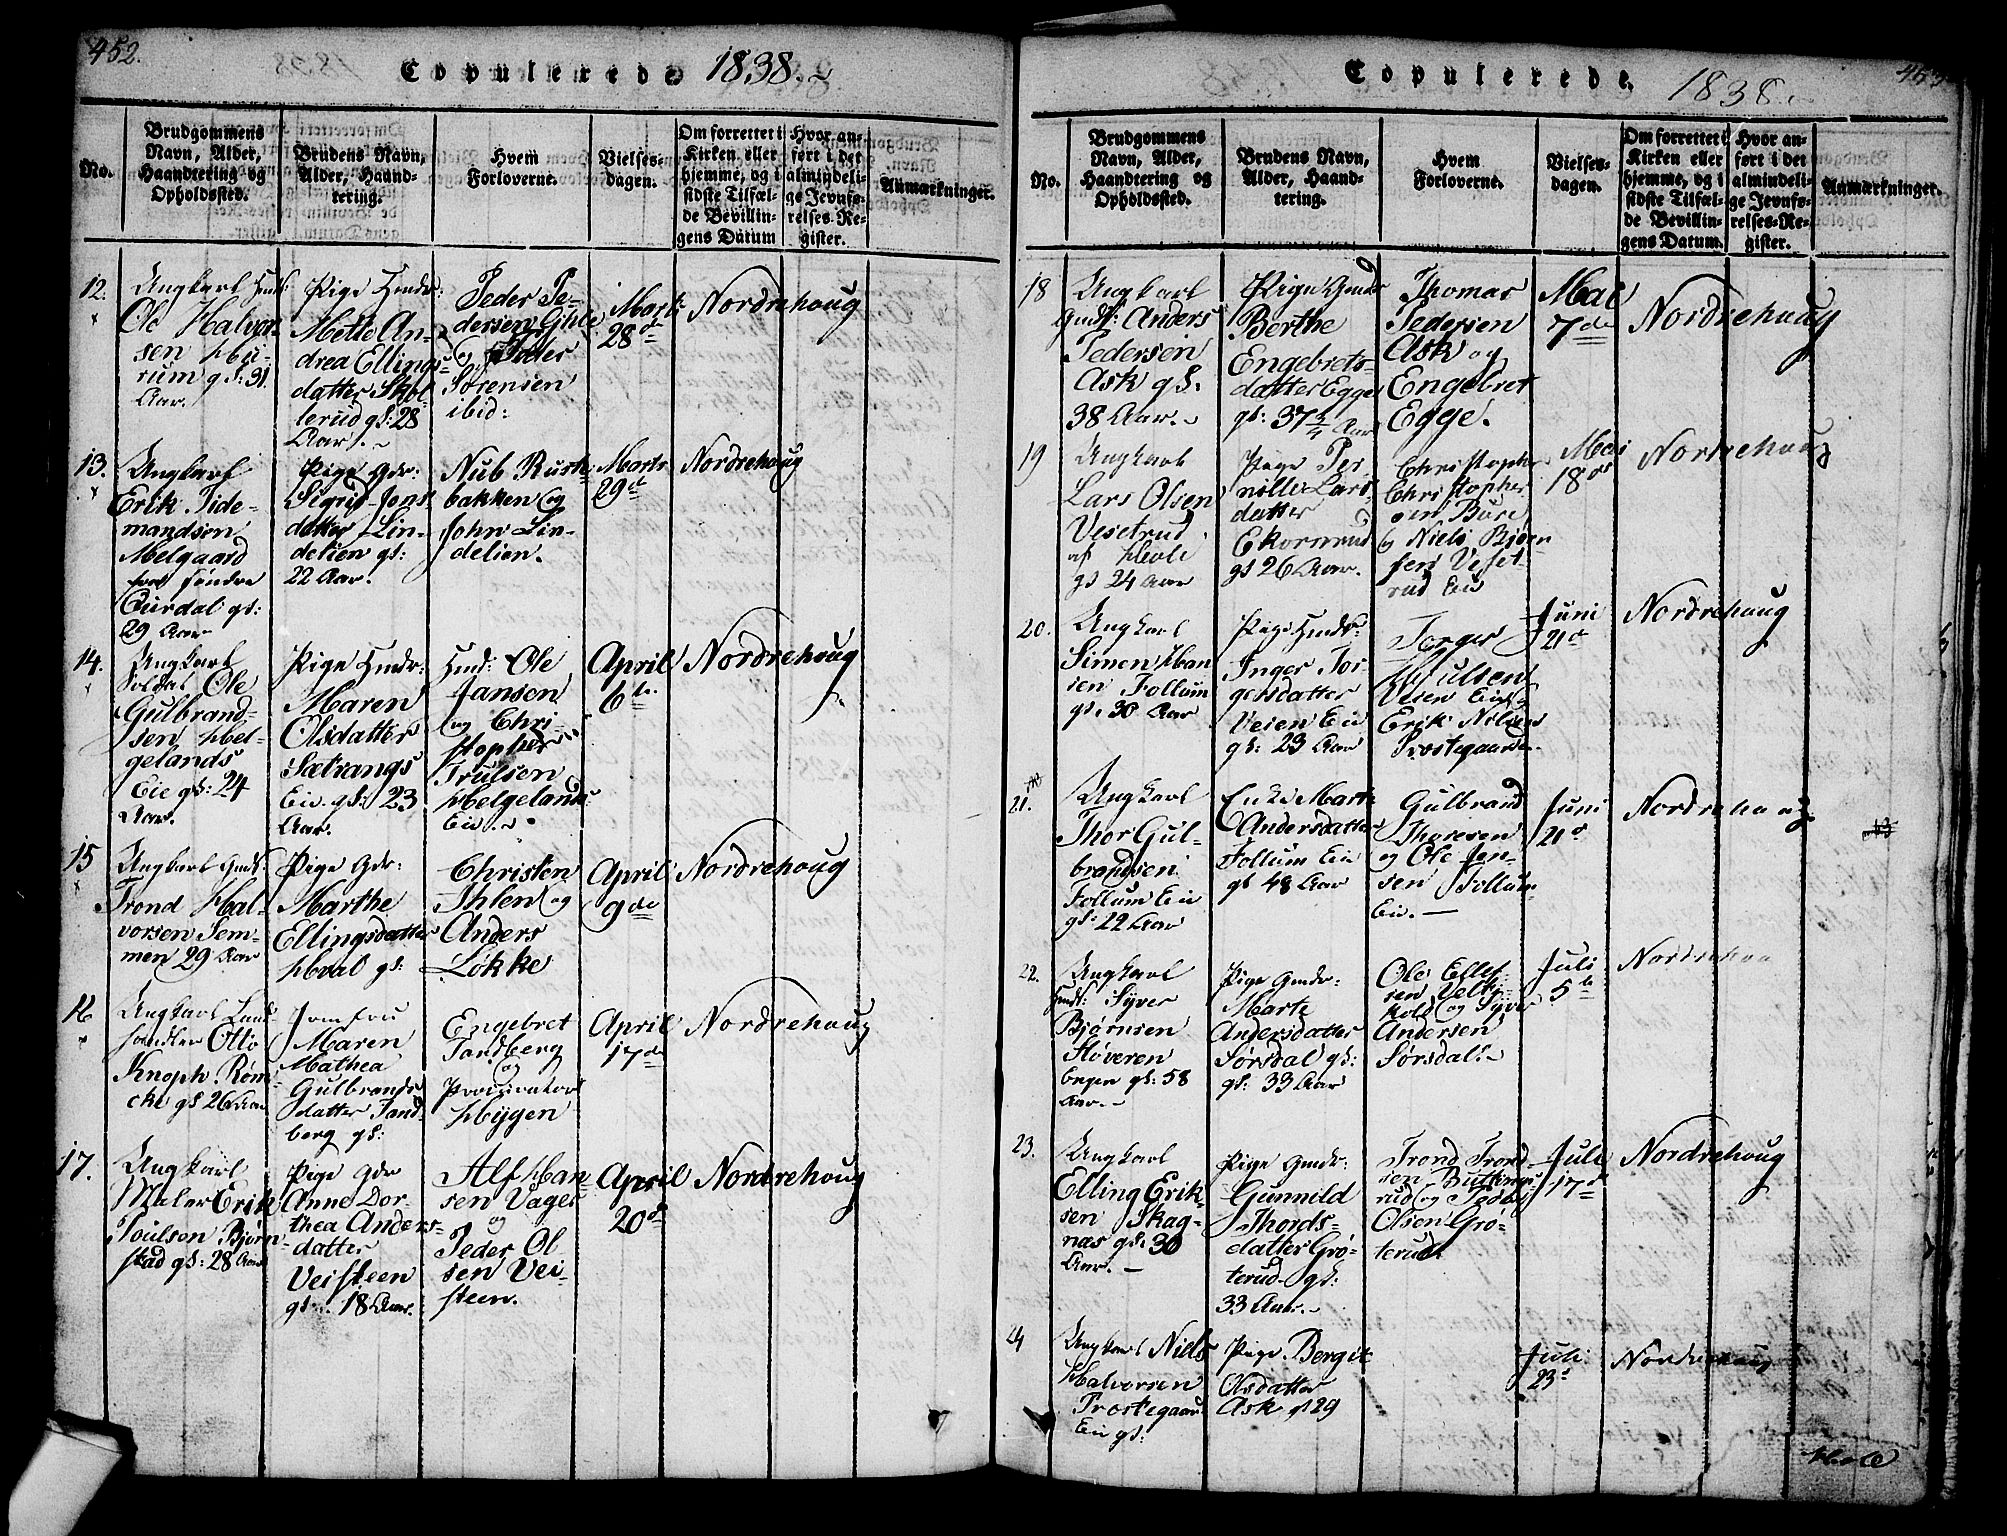 452.
Copulerede 1838.
No.
Brudgommens
Navn, Alder,
Haandtering og
Opholdssted.
Brudens Navn,
Alder, Haand-
tering.
Hvem
Forloverne.
Vielses-
dagen.
Om forrettet i
Kirken eller
hjemme, og i
sidste Tilfæl-
de Bevillin-
gens Datum
Hvor an-
ført i det
almindeli-
ge Jevnfø-
relses-Re-
gister.
Anmærkninger.
12.
Ungkarl
Ole Halvor
sen
rum gs: 31
Aar.
Pige
Mette An-
drea Ellings-
datter Skol-
lerud gs: 28
Aar.
Peder Pe-
dersen Gihle
og Peder
Sørensen
ibid:
Marti
28de
Nordrehoug
13.
Ungkarl
Erik Tide-
mandsen
Melgaard
søndre
Ourdal gs:
29 Aar
Pige Gdr:
Sigrid Jons
datter Lin-
delien gs:
22 Aar.
Nub Rust
bakken og
John Lin-
delien.
Marti
29de
Nordrehoug
14.
Ungkarl
Soldat Ole
Gulbrand-
sen Hel-
gelands
Eie gs: 24
Aar.
Pige Hudr:
Maren
Olsdatter
Sætrangs
Eie gs: 23
Aar.
Hmd: Ole
Jansen
og Chri-
stopher
Trulsen
Helgelands
Eie.
April
6te
Nordrehoug
15
Ungkarl Gmdf:
Trond Hal-
vorsen Sem-
men 29 Aar
Pige Gdr:
Marthe
Ellingsdatter
Hval gs:
Christen
Ihlen og
Anders
Løkke
April
9de
Nordrehoug
16
Ungkarl Land-
handler Otto
Knoph Røm-
cke gs 26 Aar
Jomfru
Maren
Mathea
Gulbrands
datter Tand
berg gs:
Engebret
Tandberg
og
Procurator
Hygen
April
17de
Nordrehoug
17.
Ungkarl
Maler Erik
Poulsen Bjørn-
stad gs: 28 Aar
Pige Gdr
Anne Dor-
thea Anders-
datter
Veisteen
gs: 18 Aar.
Alf Han
sen Vager
og
Peder Ol
sen Vei-
steen.
April
20de
Nordrehoug
Copulerede. 1838.
453
No.
Brudgommens
Navn, Alder,
Haandtering og
Opholdssted.
Brudens Navn,
Alder, Haand-
tering.
Hvem
Forloverne.
Vielses-
dagen.
Om forrettet i
Kirken eller
hjemme, og i
sidste Tilfæl-
de Bevillin-
gens Datum.
Hvor an-
ført i det
almindeli-
ge Jevnfø-
relses-Re-
gister.
Anmærkninger.
18
Ungkarl
Gmdf: Anders
Pedersen
Ask gs.
38 Aar.
Pige Gmdr
Berthe
Engebrets-
datter Egge
gs: 37 3/4 Aar
Thomas
Pedersen
Ask og
Engebret
Egge.
Mai
7de
Nordrehoug
19
Ungkarl
Lars Olsen
Vesetrud
af Hole
gs 24 Aar
Pige Per-
nille Lars-
datter
Ekornrud
gs 26 Aar.
Christopher
Christopher
sen Bure
og Niels Bjørn
sen Veset
rud Eie
Mai
18de
Nordrehoug
20.
Ungkarl
Simen Han
sen Follum
gs. 30 Aar
Pige Huudr:
Inger Tor
gersdatter
Veien Eie
gs: 23 Aar
Torger
Veien Eie og
Erik Nilsen
Præstegaarden.
Juni
21de
Nordrehoug
21.
Ungkarl
Thor Gul-
brandsen
Follum Eie
gs: 22 Aar
Enke Marte
Andersdatter
Follum Eie
gs 48 Aar
Gulbrand
Thoresen
og Ole Jen-
sen Follum
Eie.
Juni
21de
Nordrehoug
22.
Ungkarl
Syver
Bjørnsen
Støveren
Engen gs: 58
Aar.
Pige Gmdr:
Marte
Andersdatter
Sørsdal gs:
gs: 33 Aar
Ole Ellef-
sen Velt-
kold og Syver
Andersen
Sørsdal
Juli
5te
Nordrehou
23.
Ungkarl
Elling Erik-
sen Skag-
næs gs: 30
Aar.
Pige Gmdr:
Gunnild
Thords-
datter Grø-
terud gs:
33 Aar.
Trond Trond
sen Buttings
rud og
Olsen Grø-
terud.
Juli
17de
Nordrehoug
24
Ungkarl Niels
Halvorsen
Præstegaard
Eie gs:
Pige Bergit
Olsdatter
Ask gs 29
Juli
23de
Nordrehoug
Hole